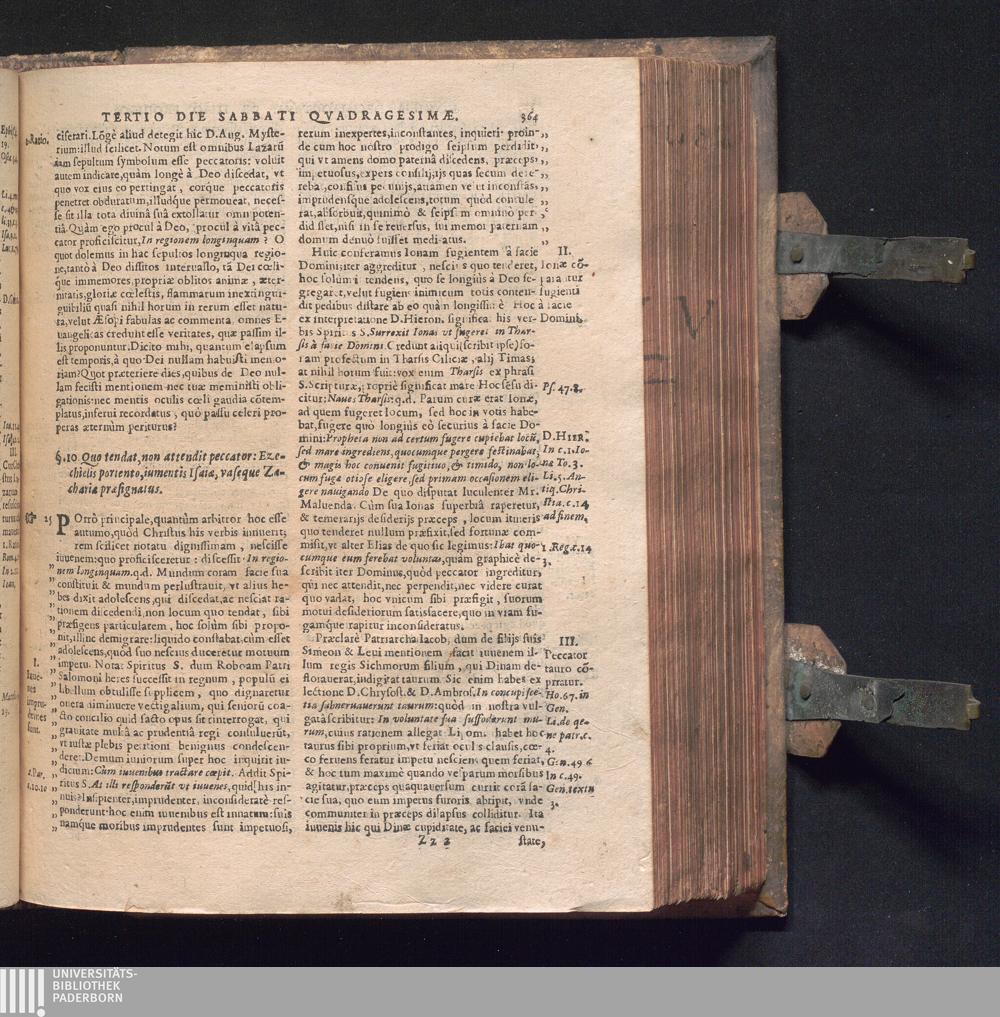 TERTIO DIE SABBATI QVADRAGESIMÆ. 364
2. Ratio.
ciferari. Lõgè aliud detegit hic D. Aug. Myste-
rium: illud scilicet. Notum est omnibus Lazarũ
iam sepultum symbolum esse peccatoris: voluit
autem indicare, quàm longè à Deo discedat, vt
quo vox eius eo pertingat, corque peccatoris
penetret obduratum, illudque permoueat, neces-
se sit illa tota diuina sua extollatur omnipoten-
tia. Quàm ego procul à Deo, procul à vita pec-
cator proficiscitur, In regionem longinquam? O
quot dolemus in hac sepultos longinqua regio-
ne, tantò à Deo dissitos interuallo, tã Dei cœli-
que immemores, propriæ oblitos animæ, æter-
nitatis, gloriæ cœlestis, flammarum inextingui-
guibiliũ quasi nihil horum in rerum esset natu-
ra, velut Æsopi fabulas ac commenta omnes E-
uangelicas credunt esse veritates, quæ passim il-
lis proponuntur. Dicito mihi, quantum elapsum
est temporis, à quo Dei nullam habuisti memo-
riam? Quot præteriere dies, quibus de Deo nul-
lam fecisti mentionem nec tuæ meministi obli-
gationis: nec mentis oculis cœli gaudia cõtem-
platus, inferui recordatus, quò passu celeri pro-
peras æternùm periturus?
§. 10 Quo tendat, non attendit peccator: Eze-
chielis portento, iumentis Isaiæ, vaseque Za-
chariæ præsignatus.
☞ 25 POrrò principale, quantùm arbitror hoc esse
autumo, quòd Christus his verbis innuerit;
rem scilicet notatu dignissimam, nescisse
iuuenem: quo proficisceretur: discessit In regio-
nem longinquam. q.d. Mundum coram facie sua
constituit & mundum perlustrauit, vt alius he-
bes dixit adolescens, qui discedat, ac nesciat ra-
tionem discedendi, non locum quo tendat, sibi
præfigens particularem, hoc solùm sibi propo-
nit, illinc demigrare: liquido constabat, cùm esset
adolescens, quòd suo nescius duceretur motuum
impetu. Nota: Spiritus S. dum Roboam Patri
Salomoni heres successit in regnum, populũ ei
libellum obtulisse supplicem, quo dignaretur
onera diminuere vectigalium, qui seniorũ coa-
cto concilio quid facto opus sit cinterrogat, qui
grauitate multa ac prudentia regi consuluerũt,
vt iustæ plebis petitioni benignus condescen-
deret. Demum iuniorum super hoc inquirit iu-
dicium: Cùm iuuenibus tractare cœpit. Addit Spi-
ritus S. At illi responderũt vt iuuenes, quid[ his in-
nuis? Insipienter, imprudenter, inconsideratè res-
ponderunt: hoc enim iuuenibus est innatum: suis
namque moribus imprudentes sunt impetuosi,
I.
Iuue-
nes
impru-
dentes
sunt.
2. Par.
c. 10. 10
rerum inexpertes, inconstantes, inquieti: proin-
de cum hoc nostro prodigo seipsum perdidit,
qui vt amens domo paterna discedens, præceps,
impetuosus, expers consilij, ijs quas secum defe-
rebat, confisus pecunijs, attamen velut inconstãs,
imprudensque adolescens, totum quod contule-
rat, absorbuit, quinimò & seipsum omninò per-
didisset, nisi in se reuersus, sui memor paternam
domum denuò fuisset meditatus.
Huic conferamus Ionam fugientem à facie
Domini; iter aggreditur, nescius quo tenderet,
hoc solùm intendens, quo se longiùs à Deo se-
gregaret, velut fugiens inimicum totis conten-
dit pedibus distare ab eo quàm longissimè Hoc
ex interpretatione D. Hieron. significat his ver-
bis Spiritus S. Surrexit Ionas vt fugeret in Thar-
sis à facie Domini. Credunt aliqui (scribit ipse) Io-
nam profectum in Tharsis Ciliciæ, alij Timas;
at nihil horum fuit: vox enim Tharsis ex phrasi
S. Scripturæ, propriè significat mare Hoc sẽsu di-
citur: Naues Tharsis: q.d. Parum curæ erat Ionæ,
ad quem fugeret locum, sed hoc in votis habe-
bat, fugere quò longiùs eò securius à facie Do-
mini: Propheta non ad certum fugere cupiebat locũ,
sed mare ingrediens, quocumque pergere festinabat,
& magis hoc conuenit fugitiuo, & timido, non lo-
cum fugæ otiose eligere, sed primam occasionem eli-
gere nauigando De quo disputat luculenter Mr.
Maluenda. Cùm sua Ionas superbia raperetur,
& temerarijs desiderijs præceps, locum itineris
quo tenderet nullum præfixit, sed fortunæ com-
misit, vt alter Elias de quo sic legimus: Ibat quo-
cumque eum ferebat voluntas, quàm graphicè de-
scribit iter Dominus, quòd peccator ingreditur,
qui nec attendit, nec perpendit, nec videre curat
quo vadat, hoc vnicum sibi præfigit, suorum
motui desideriorum satisfacere, quo in viam fu-
gamque rapitur inconsideratus.
Præclarè Patriarcha Iacob, dum de filijs suis
Simeon & Leui mentionem facit iuuenem il-
lum regis Sichmorum filium, qui Dinam de-
florauerat, indigitat taurum. Sic enim habes ex
lectione D. Chrysost. & D. Ambros. In concupiscen-
tia subneruauerunt taurum: quòd in nostra vul-
gata scribitur: In voluntate sua suffoderunt mu-
rum, cuius rationem allegat Lipom. habet hoc
taurus sibi proprium, vt feriat oculis clausis, cœ-
co ferueus feratur impetu nesciens quem feriat,
& hoc tum maximè quando vesparum morsibus
agitatur, præceps quaquauersum currit corã fa-
cie sua, quo eum impetus furoris abripit, vnde
communiter in præceps dilapsus colliditur. Ita
iuuenis hic qui Dinæ cupiditate, ac faciei venu-
II.
Ionæ cõ-
paratur
fugienti
à facie
Domini.
Ps. 47. 8.
D. HIER.
In c. 1. Io-
næ To. 3.
Li. 5. An-
tiq. Chri-
sti a. c. 14
ad finem.
1. Reg. c. 14
3.
III.
Peccator
tauro cõ-
paratur.
Ho. 67. in
Gen.
Li. de ge-
ne patr. c.
4.
Gen. 49 6
In c. 49.
Gen. text.
3.
Z z 2 state,
UNIVERSITÄTS-
BIBLIOTHEK
PADERBORN